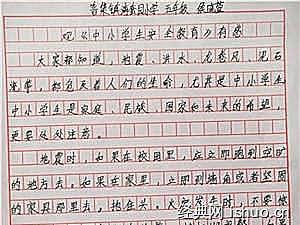 镇 小学 五年级
观《中小学生安全教育》有感
大家都知道,地震、洪水、龙卷风、泥石
流等,都危害人们的生命,尤其是中小学生
中小学生是家庭、民族、国家和未来的希望,
更要处处注意。
地震时,如果在校园里,应立即跑到空旷
的地方去。如果在家里,立即到墙角或者坚固
的家具那里去,抱住头。火灾发生时,不要惊
经典网 ushuo.cn